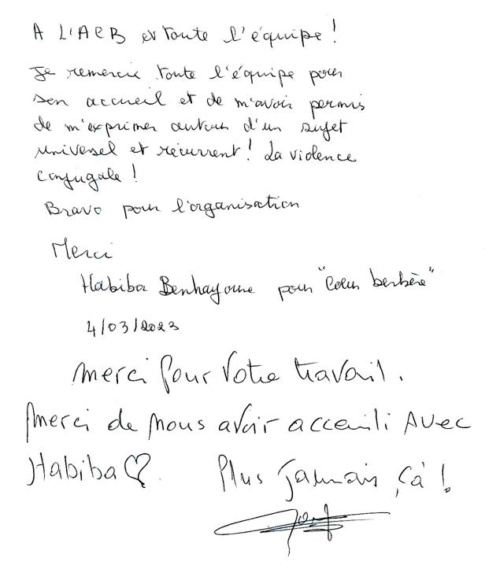 A L'ACB et toute l'équipe !
Je remercie toute l'équipe pour
son accueil et de m'avoir permis
de m'exprimer autour d'un sujet
univesel et récurrent ! La violence
conjugale !
Bravo pour l'organisation
Merci
Habiba Benhayoune pour "Coeur berbère"
4/03/2023
merci pour votre travail.
Merci de nous avoir acceuili Avec
Habiba♡. Plus Jamais ça !